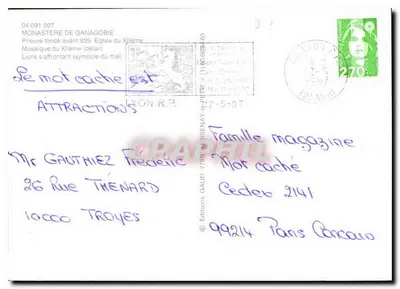 04.091.007
MONASTERE DE GANAGOBIE
Prieuré fondé avant 939: Eglise du XIIème
Mosaïque du XIIème (détail)
Lions s'affrontant (symbole du mal)
Le mot caché est
ATTRACTIONS
Mr GAUTHIEZ Frédéric
26 Rue THÉNARD
10000 TROYES
LYON R.P.
2,70
Famille magazine
Mot caché
Cedex 2141
99214 Paris Concours
© Editions GAUD